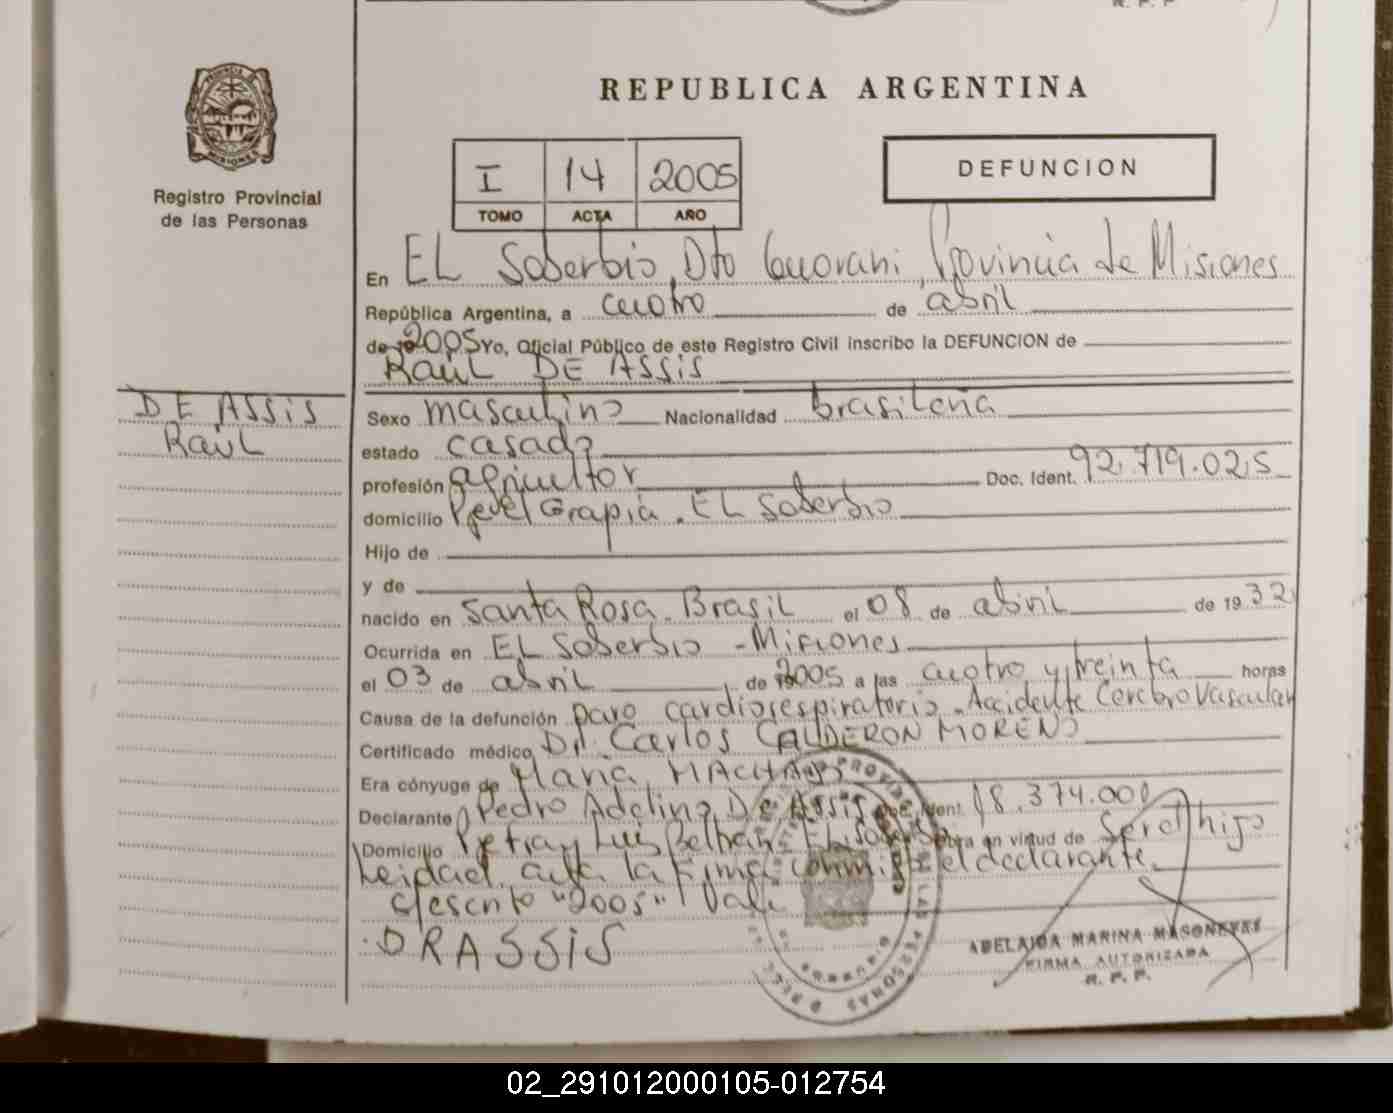 REPUBLICA ARGENTINA
PROVINCIA DE MISIONES
Registro Provincial
de las Personas
I 14 2005
TOMO ACTA AÑO
DEFUNCION
En EL Soberbio, Dto Guarani, Provincia de Misiones
República Argentina, a cuatro de abril
de 2005 Yo, Oficial Público de este Registro Civil inscribo la DEFUNCION de
Raúl DE ASSiS
DE ASSiS
Raúl
Sexo masculino Nacionalidad brasileña
estado casado
profesión agricultor Doc. Ident. 92.719.025
domicilio Grapia. EL Soberbio
Hijo de
y de
nacido en Santa Rosa. Brasil el 08 de abril de 1932
Ocurrida en EL Soberbio - Misiones
el 03 de abril de 2005 a las cuatro y treinta horas
Causa de la defunción paro cardiorespiratorio. Accidente Cerebro Vascular
Certificado médico Dr. Carlos CALDERON MORENO
Era cónyuge de Maria MACHADO
Declarante Pedro Adelino De Assis Doc. Ident. 18.374.000
Domicilio Fray Luis Beltran Obra en virtud de Ser el hijo
Leida el acta la firma conmigo el declarante.
s/escrito "2005" Vale
DRASSiS
ADELAIDA MARINA
FIRMA AUTORIZADA
R. P. P.
02_291012000105-012754